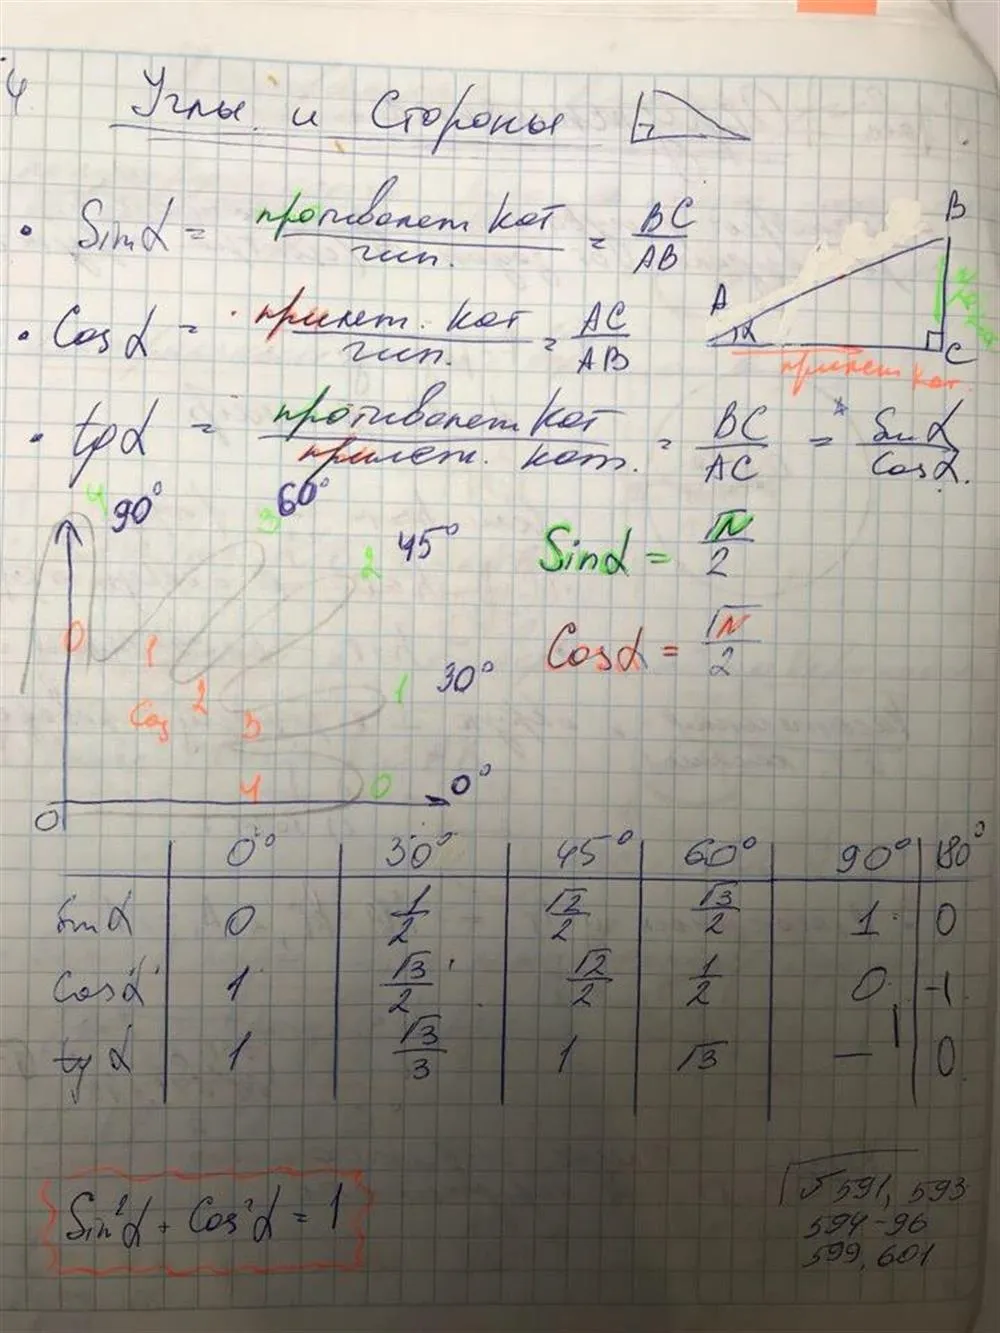 4
Углы и Стороны
• Sin α = противолеж кат / гип. = BC / AB
• Cos α = прилеж. кат / гип. = AC / AB
• tg α = противолеж кат / прилеж. кат. = BC / AC = Sin α / Cos α.
A B C α
прилеж кат.
4 90° 3 60° 2 45°
Sin α = √N / 2
Cos α = √N / 2
0 1 2 3 4
Cos
1 30°
0 0°
0
0° 30° 45° 60° 90° 180°
Sin α 0 1/2 √2/2 √3/2 1 0
Cos α 1 √3/2 √2/2 1/2 0 -1
tg α 1 √3/3 1 √3 — 0
Sin²α + Cos²α = 1
591, 593
594-96
599, 601